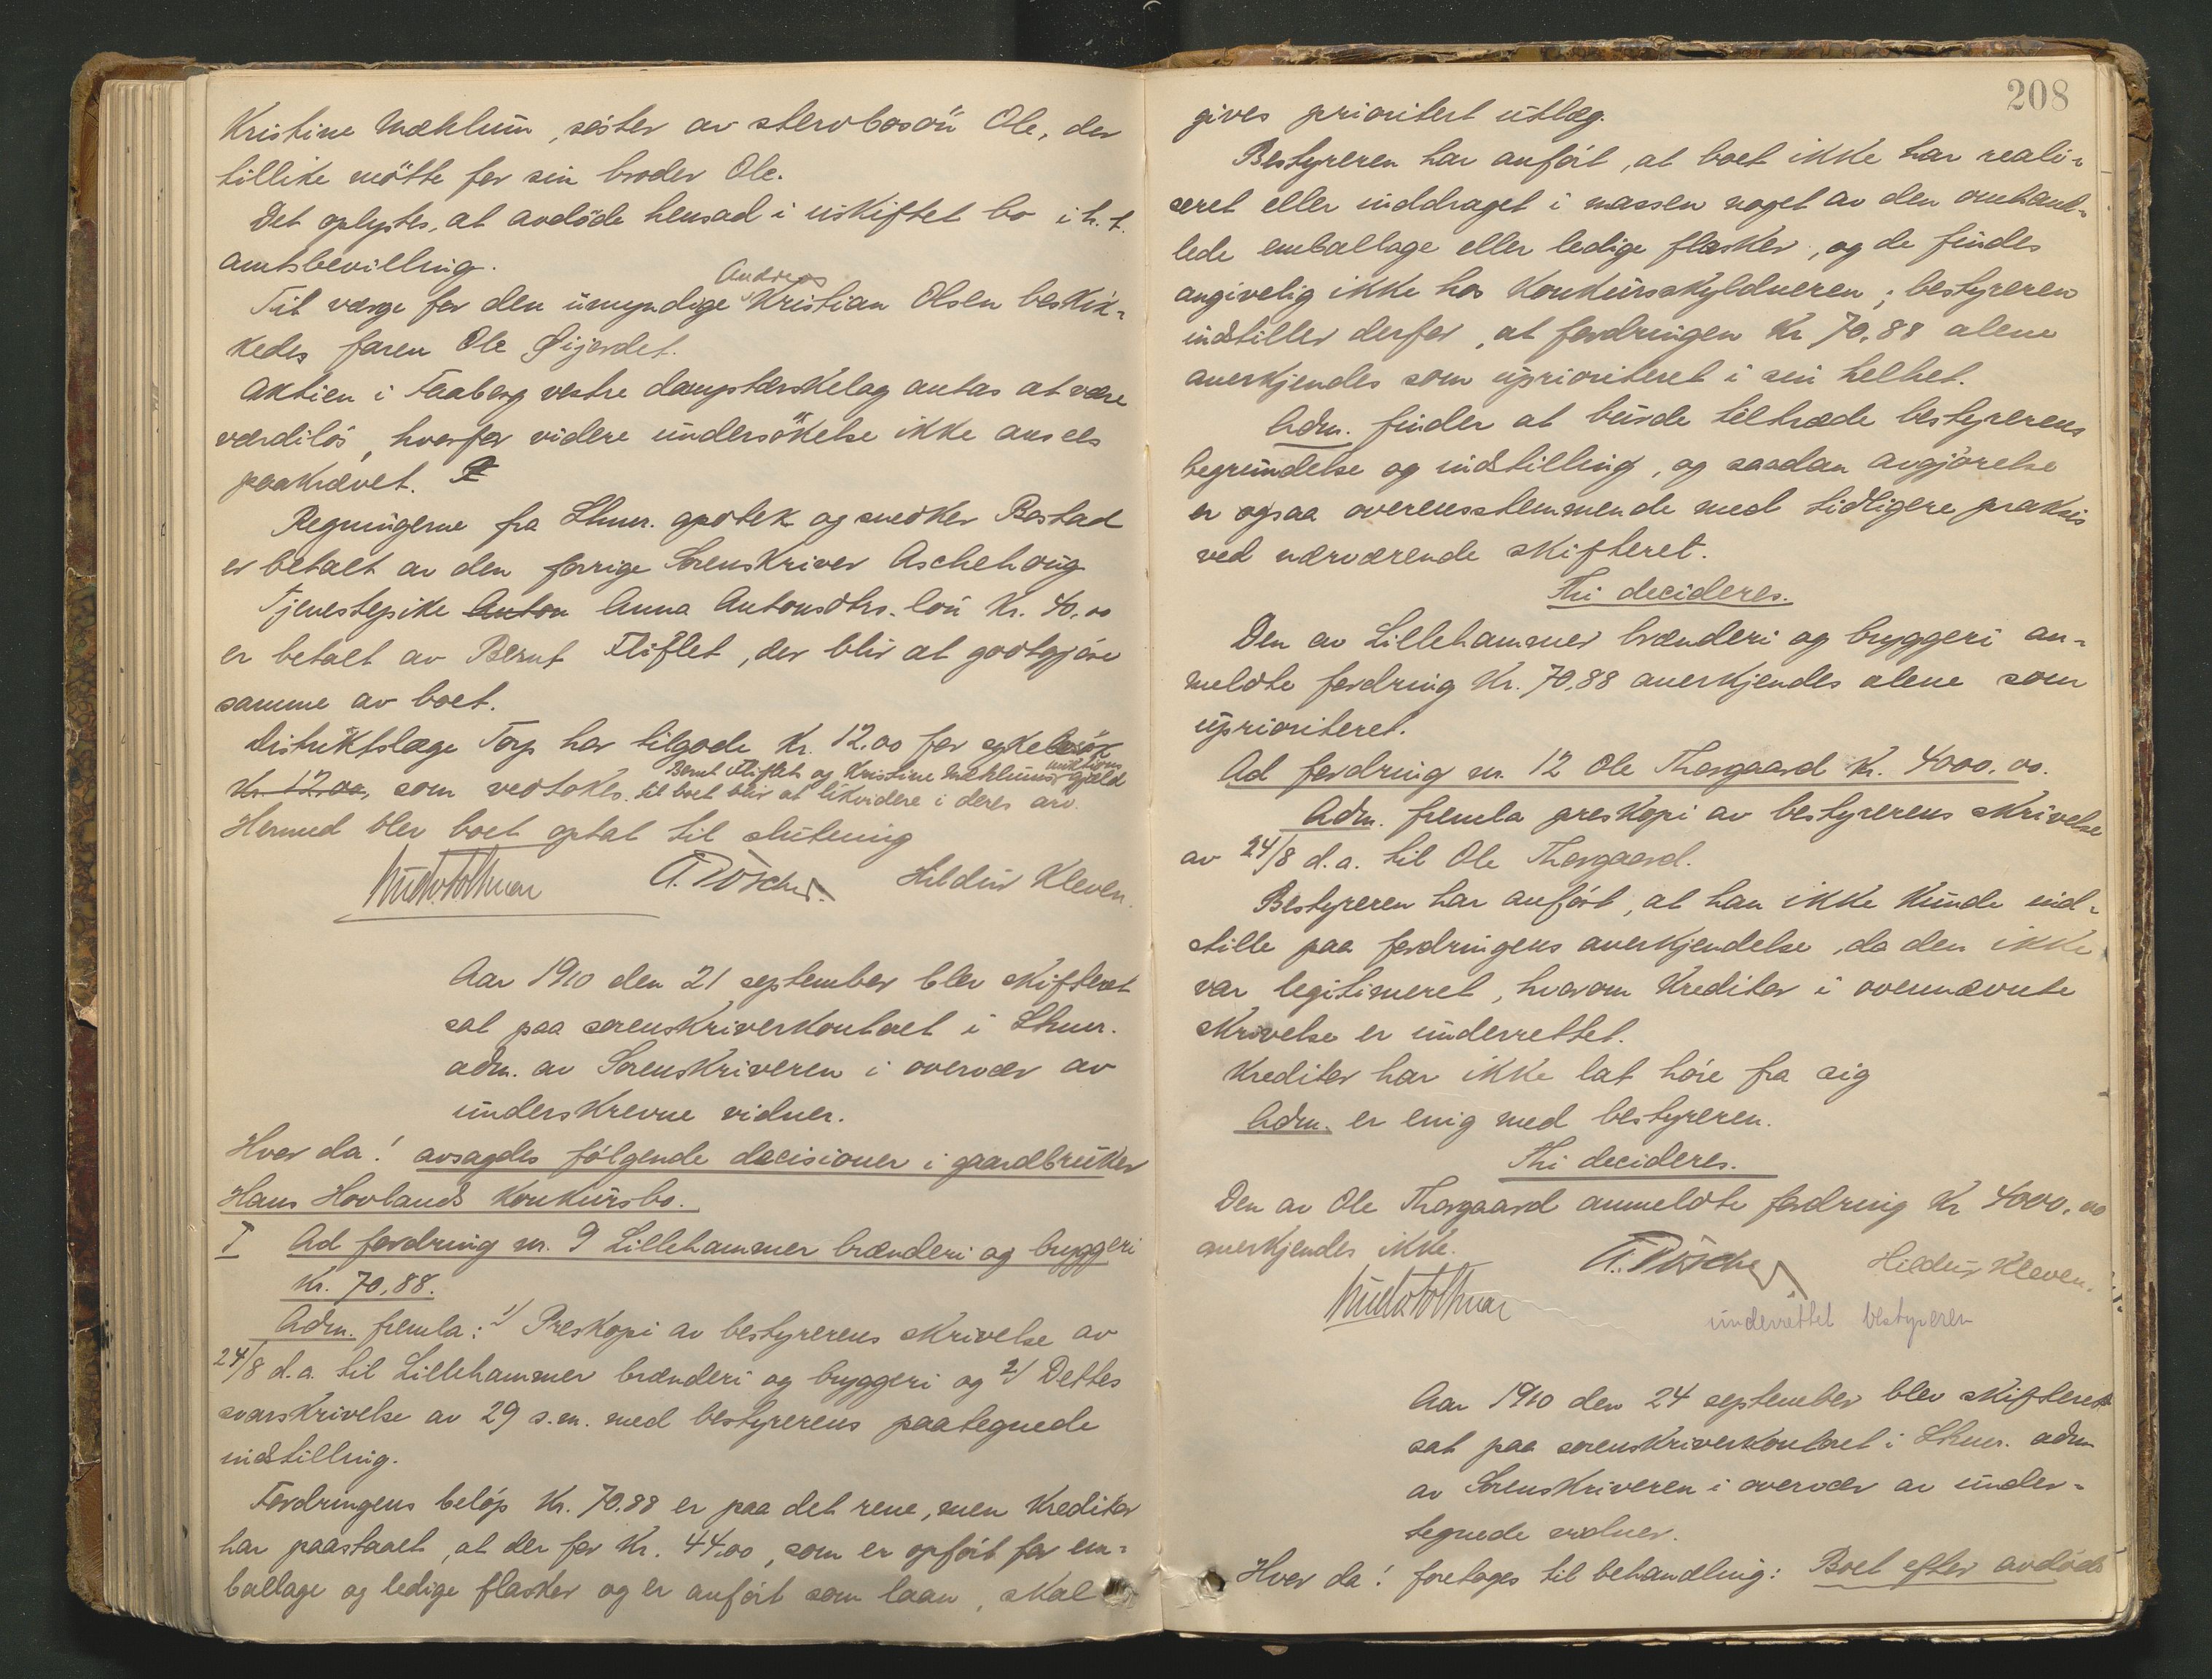 Kristine Mæhlum, søster av stervbosøn Ole, der
tillike møtte for sin broder Ole.
Det oplystes, at avdøde hensad i uskiftet bo i h. t.
amtsbevilling.
Andreas
Til værge for den umyndige Kristian Olsen beskik-
kedes faren Ole Øijordet.
Aktien i Faaberg vestre damptærskelag antas at være
værdiløs, hvorfor videre undersøkelse ikke ansees
paakrævet.
Regningerne fra Lhmr. apotek og snedker Bastad
er betalt av den forrige Sorenskriver Aschehoug
Tjenestepike Anton Anna Antonsdtrs. løn Kr. 40.00
er betalt av Bernt Fliflet, der blir at godtgjøre
samme av boet.
Distriktslæge Torp har tilgode Kr. 12.00 for sykebesøk
Bernt Fliflet og Kristine Mæhlums auktionsgjæld
Kr. 12.00, som vedtokes. til boet blir at likvidere i deres arv.
Hermed blev boet optat til slutning
A. Düscher. Hildur Kleven.
Aar 1910 den 21 september blev skifteret
sat paa sorenskriverkontoret i Lhmr.
adm. av Sorenskriveren i overvær av
underskrevne vidner.
Hvor da! avsagdes følgende decisioner i gaardbruker
Hans Hovlands Konkursbo.
I Ad fordring nr. 9 Lillehammer brænderi og bryggeri
Kr. 70,88.
Adm. fremla: 1/ Preskopi av bestyrerens skrivelse av
24/8 d.a. til Lillehammer brænderi og bryggeri og 2/ Dettes
svarskrivelse av 29 s.m. med bestyrerens paategnede
indstilling.
Fordringens beløp Kr. 70.88 er paa det rene, men Kreditor
har paastaaet, at der for Kr. 44.00, som er opført for em-
ballage og ledige flasker og er anført som laan, skal
208
gives prioritert utlæg.
Bestyreren har anført, at boet ikke har reali-
seret eller inddraget i massen noget av den omhand-
lede emballage eller ledige flasker, og de findes
angivelig ikke hos Konkursskyldneren; bestyreren
indstiller derfor, at fordringen Kr 70,88 alene
anerkjendes som uprioriteret i sin helhet.
Adm. finder at burde tiltræde bestyrerens
begrundelse og indstilling, og saadan avgjørelse
er ogsaa overensstemmende med tidligere praksis
ved nærværende skifteret.
Thi decideres.
Den av Lillehammer brænderi og bryggeri an-
meldte fordring Kr. 70,88 anerkjendes alene som
uprioriteret.
Ad fordring nr. 12 Ole Thorgaard Kr. 4000.00.
Adm. fremla preskopi av bestyrerens skrivelse
av 24/8 d.a. til Ole Thorgaard.
Bestyreren har anført, at han ikke kunde ind-
stille paa fordringens anerkjendelse, da den ikke
var legitimeret, hvorom Kreditor i ovennævnte
skrivelse er underrettet.
Kreditor har ikke lat høre fra sig
Adm. er enig med bestyreren.
Thi decideres.
Den av Ole Thorgaard anmeldte fordring Kr 4000.00
anerkjendes ikke.
A. Düscher Hildur Kleven.
underrettet bestyreren
Aar 1910 den 24 september blev skifteret
sat paa sorenskriverkontoret i Lhmr. adm
av Sorenskriveren i overvær av under-
tegnede vidner.
Hvor da! foretoges til behandling: Boet efter avdøde